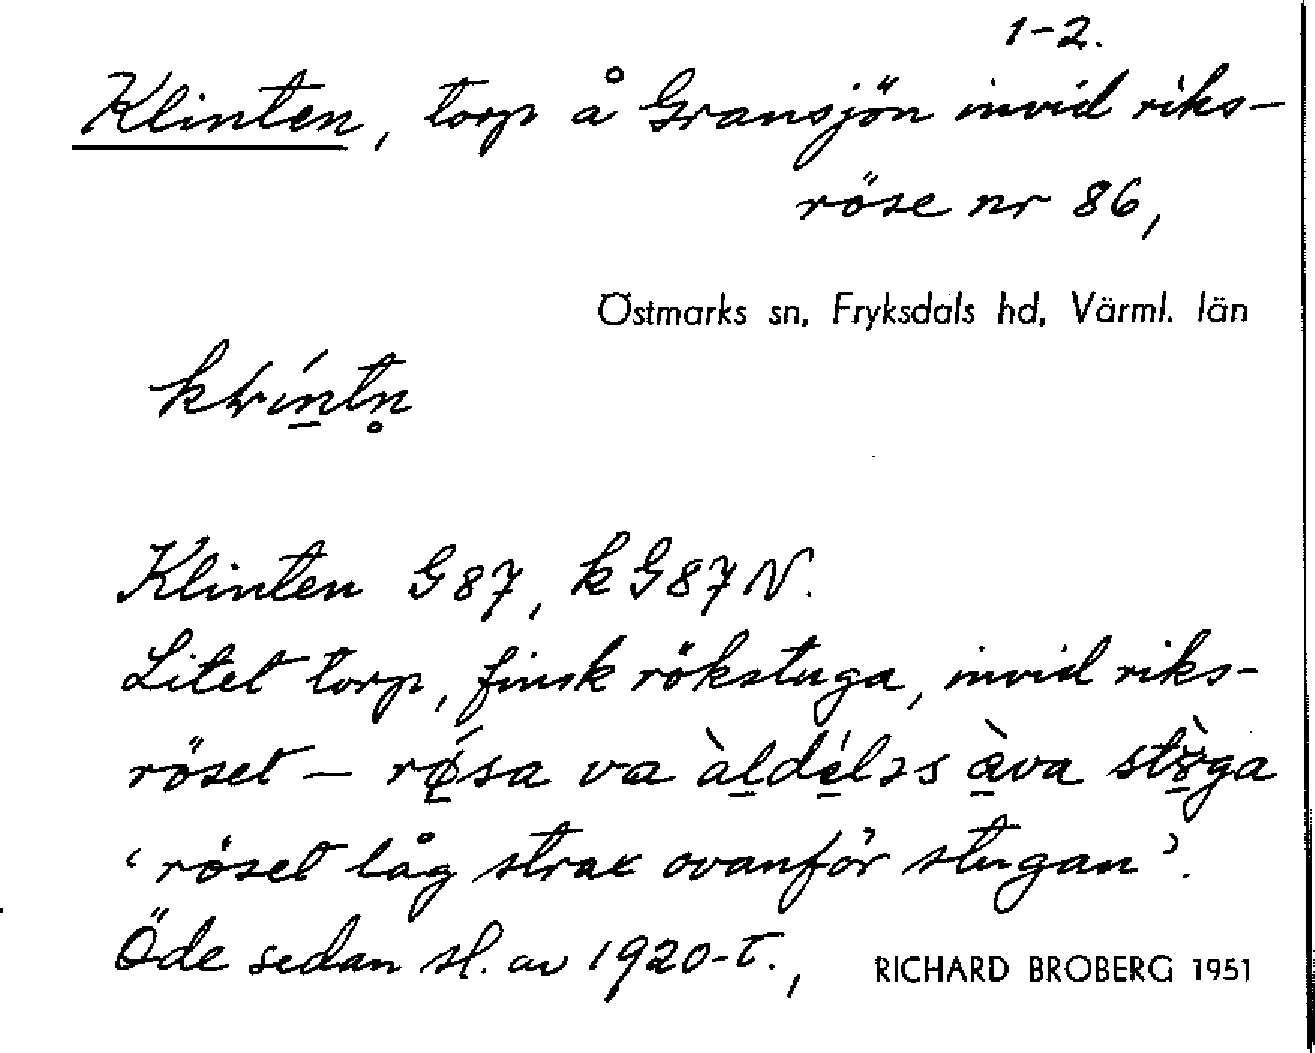 1-2.
Klinten, torp å Gransjön invid riks-
röse nr 86,
Östmarks sn, Fryksdals hd, Värml. län
Klinten G87, k G87 N.
Litet torp, finsk rökstuga, invid riks-
röset — va àldéləs àva
'röset låg strax ovanför stugan'.
Öde sedan sl. av 1920-t.,
RICHARD BROBERG 1951